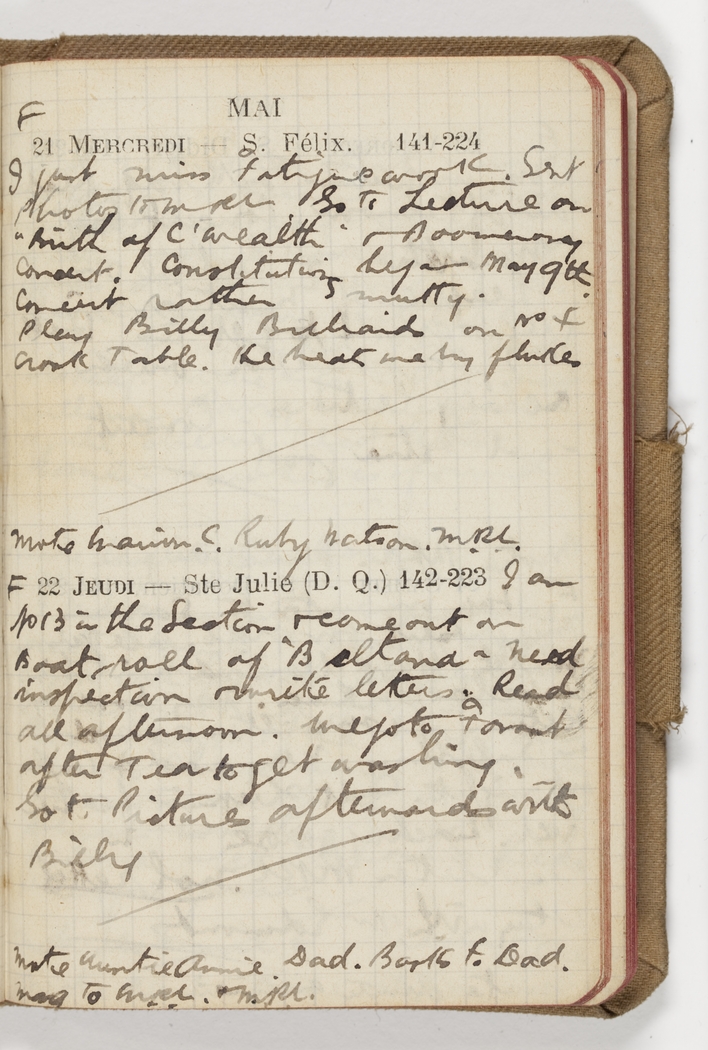 F MAI
21 MERCREDI — S. Félix. 141-224
I just miss Fatigue work. Sent
Photos to Go to Lecture on
"Birth of C'wealth" & Boomerang
Concert. Constitution began May 9th.
Concert rather smutty.
Play Billy Billiards on
crook Table. He beat me by flukes
Wrote C. Ruby Watson.
F 22 JEUDI — Ste Julie (D. Q.) 142-223 I am
No 13 in the Section & come out on
Boat roll of "Beltana"
inspection & write letters. Read
all afternoon. We go to Fovant
after Tea to get washing.
Go to Pictures afterwards with
Billy
Wrote Auntie Annie. Dad. Books to Dad.
to &